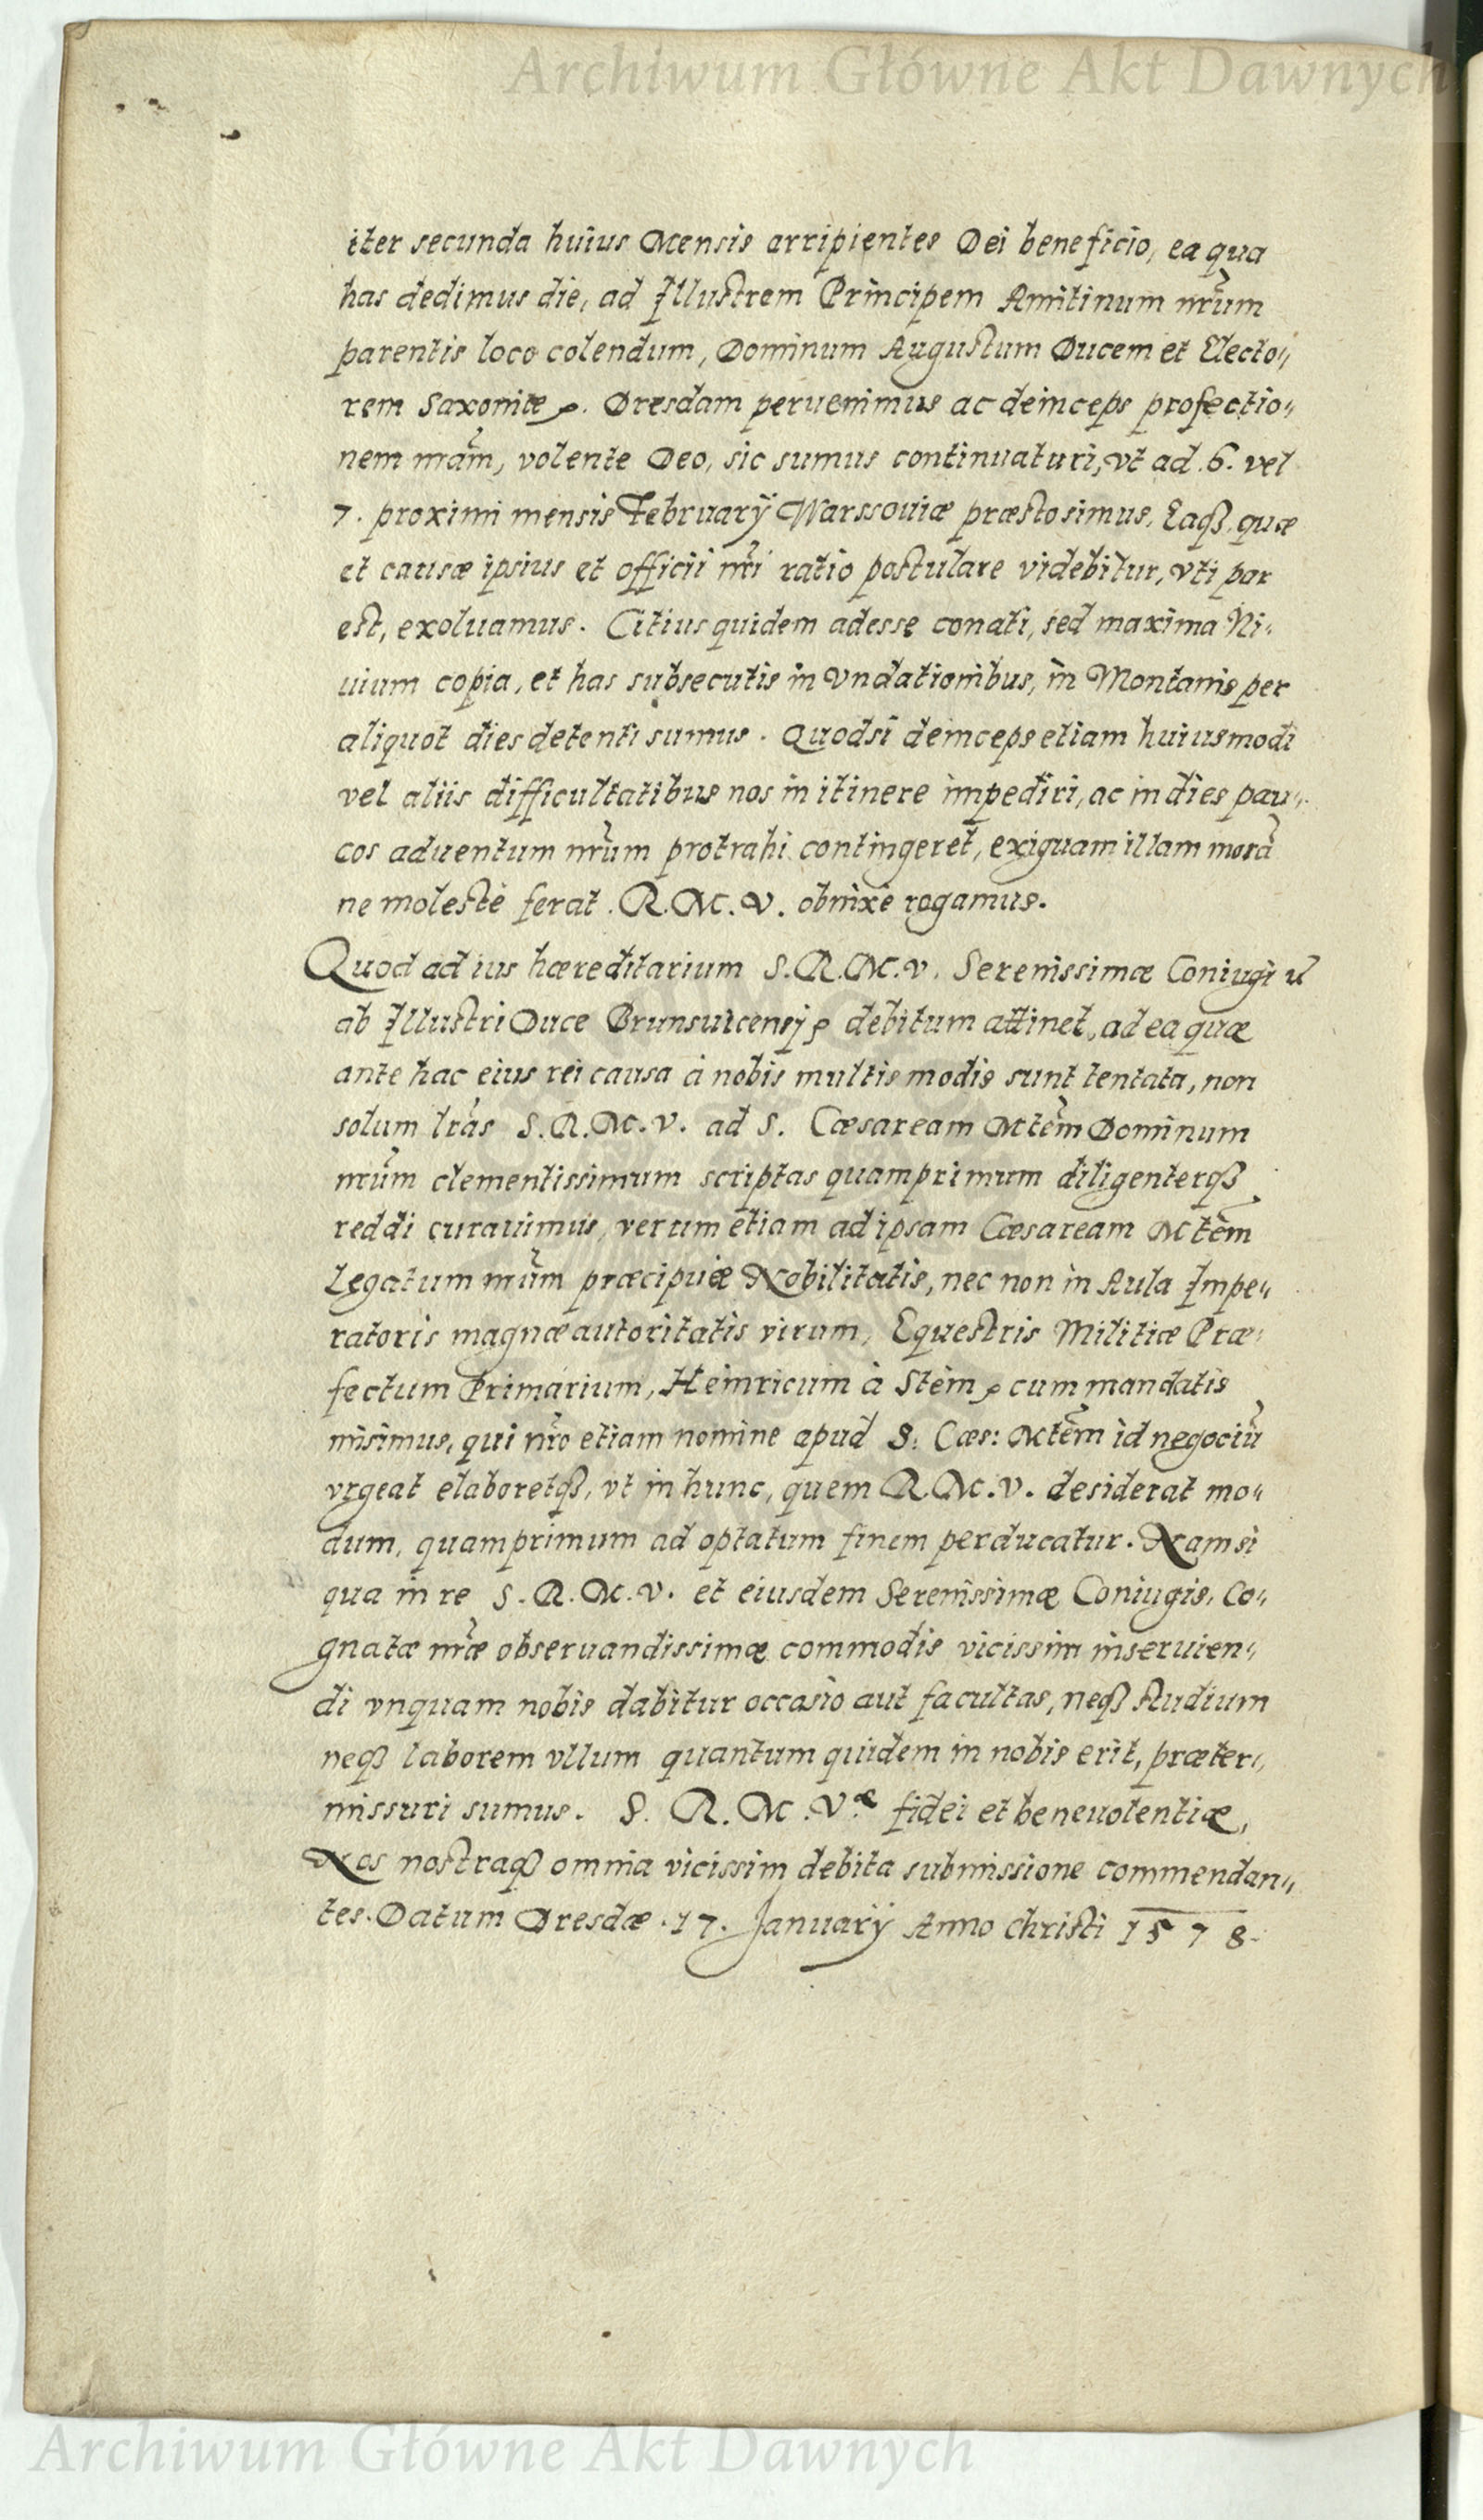 Archiwum Główne Akt Dawnych
iter secunda huius Mensis arripientes Dei beneficio, ea qua
has dedimus die, ad Illustrem Principem Amitinum nr̃um
parentis loco colendum, Dominum Augustum Ducem et Electo„
rem Saxoniæ ꝛ. Dresdam peruenimus ac deinceps profectio„
nem nr̃am, volente Deo, sic sumus continuaturi, vt ad .6. vel
7. proximi mensis Februarÿ Warssouiæ præsto simus, Eaqꝫ quæ
et causæ ipsius et officii nr̃i ratio postulare videbitur, vti par
est, exoluamus. Citius quidem adesse conati, sed maxima Ni„
uium copia, et has subsecutis inVndationibus, in Montanis per
aliquot dies detenti sumus. Quodsi deinceps etiam huiusmodi
vel aliis difficultatibus nos in itinere impediri, ac in dies pau„
cos aduentum nr̃um protrahi contingeret, exiguam illam morã
ne molestè ferat . R. M. V. obnixè rogamus.
Quod ad ius hæreditarium S. R. M. V. Serenissimæ Coniugi
ab Illustri Duce Brunsuicensi ꝛ debitum attinet, ad ea quæ
ante hac eius rei causa à nobis multis modis sunt tentata, non
solum lr̃as S. R. M. V. ad S. Cæsaream Mtẽm Dominum
nr̃um clementissimum scriptas quamprimum diligenterqꝫ
reddi curauimus, verum etiam ad ipsam Cæsaream Mtẽm
Legatum nr̃um præcipuæ Nobilitatis, nec non in Aula Impe„
ratoris magnæ autoritatis virum, Equestris Militiæ Præ„
fectum Primarium, Heinricum à Stein ꝛ cum mandatis
misimus, qui nr̃o etiam nomine apud S. Cæs: Mtẽm id negociũ
vrgeat elaboretqꝫ, vt in hunc, quem R. M. V. desiderat mo„
dum, quamprimum ad optatum finem perducatur. Nam si
qua in re S. R. M. V. et eiusdem Serenissimæ Coniugis, Co„
gnatæ nr̃æ obseruandissimæ commodis vicissim inseruien„
di vnquam nobis dabitur occasio aut facultas, neqꝫ studium
neqꝫ laborem vllum quantum quidem in nobis erit, præter„
missuri sumus. S. R. M. Vᵃᵉ fidei et beneuolentiæ,
Nos nostraqꝫ omnia vicissim debita submissione commendan„
tes. Datum Dresdæ .17. Januarÿ Anno Christi 1578.
Archiwum Główne Akt Dawnych